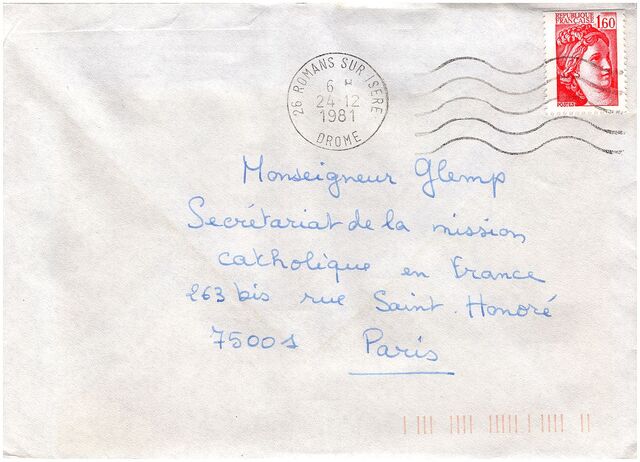 REPUBLIQUE
FRANCAISE 1,60
26 ROMANS SUR ISERE
6 H
24-12
1981
DROME
Monseigneur Glemp
Secrétariat de la mission
catholique en France
263 bis rue Saint-Honoré
75001
Paris